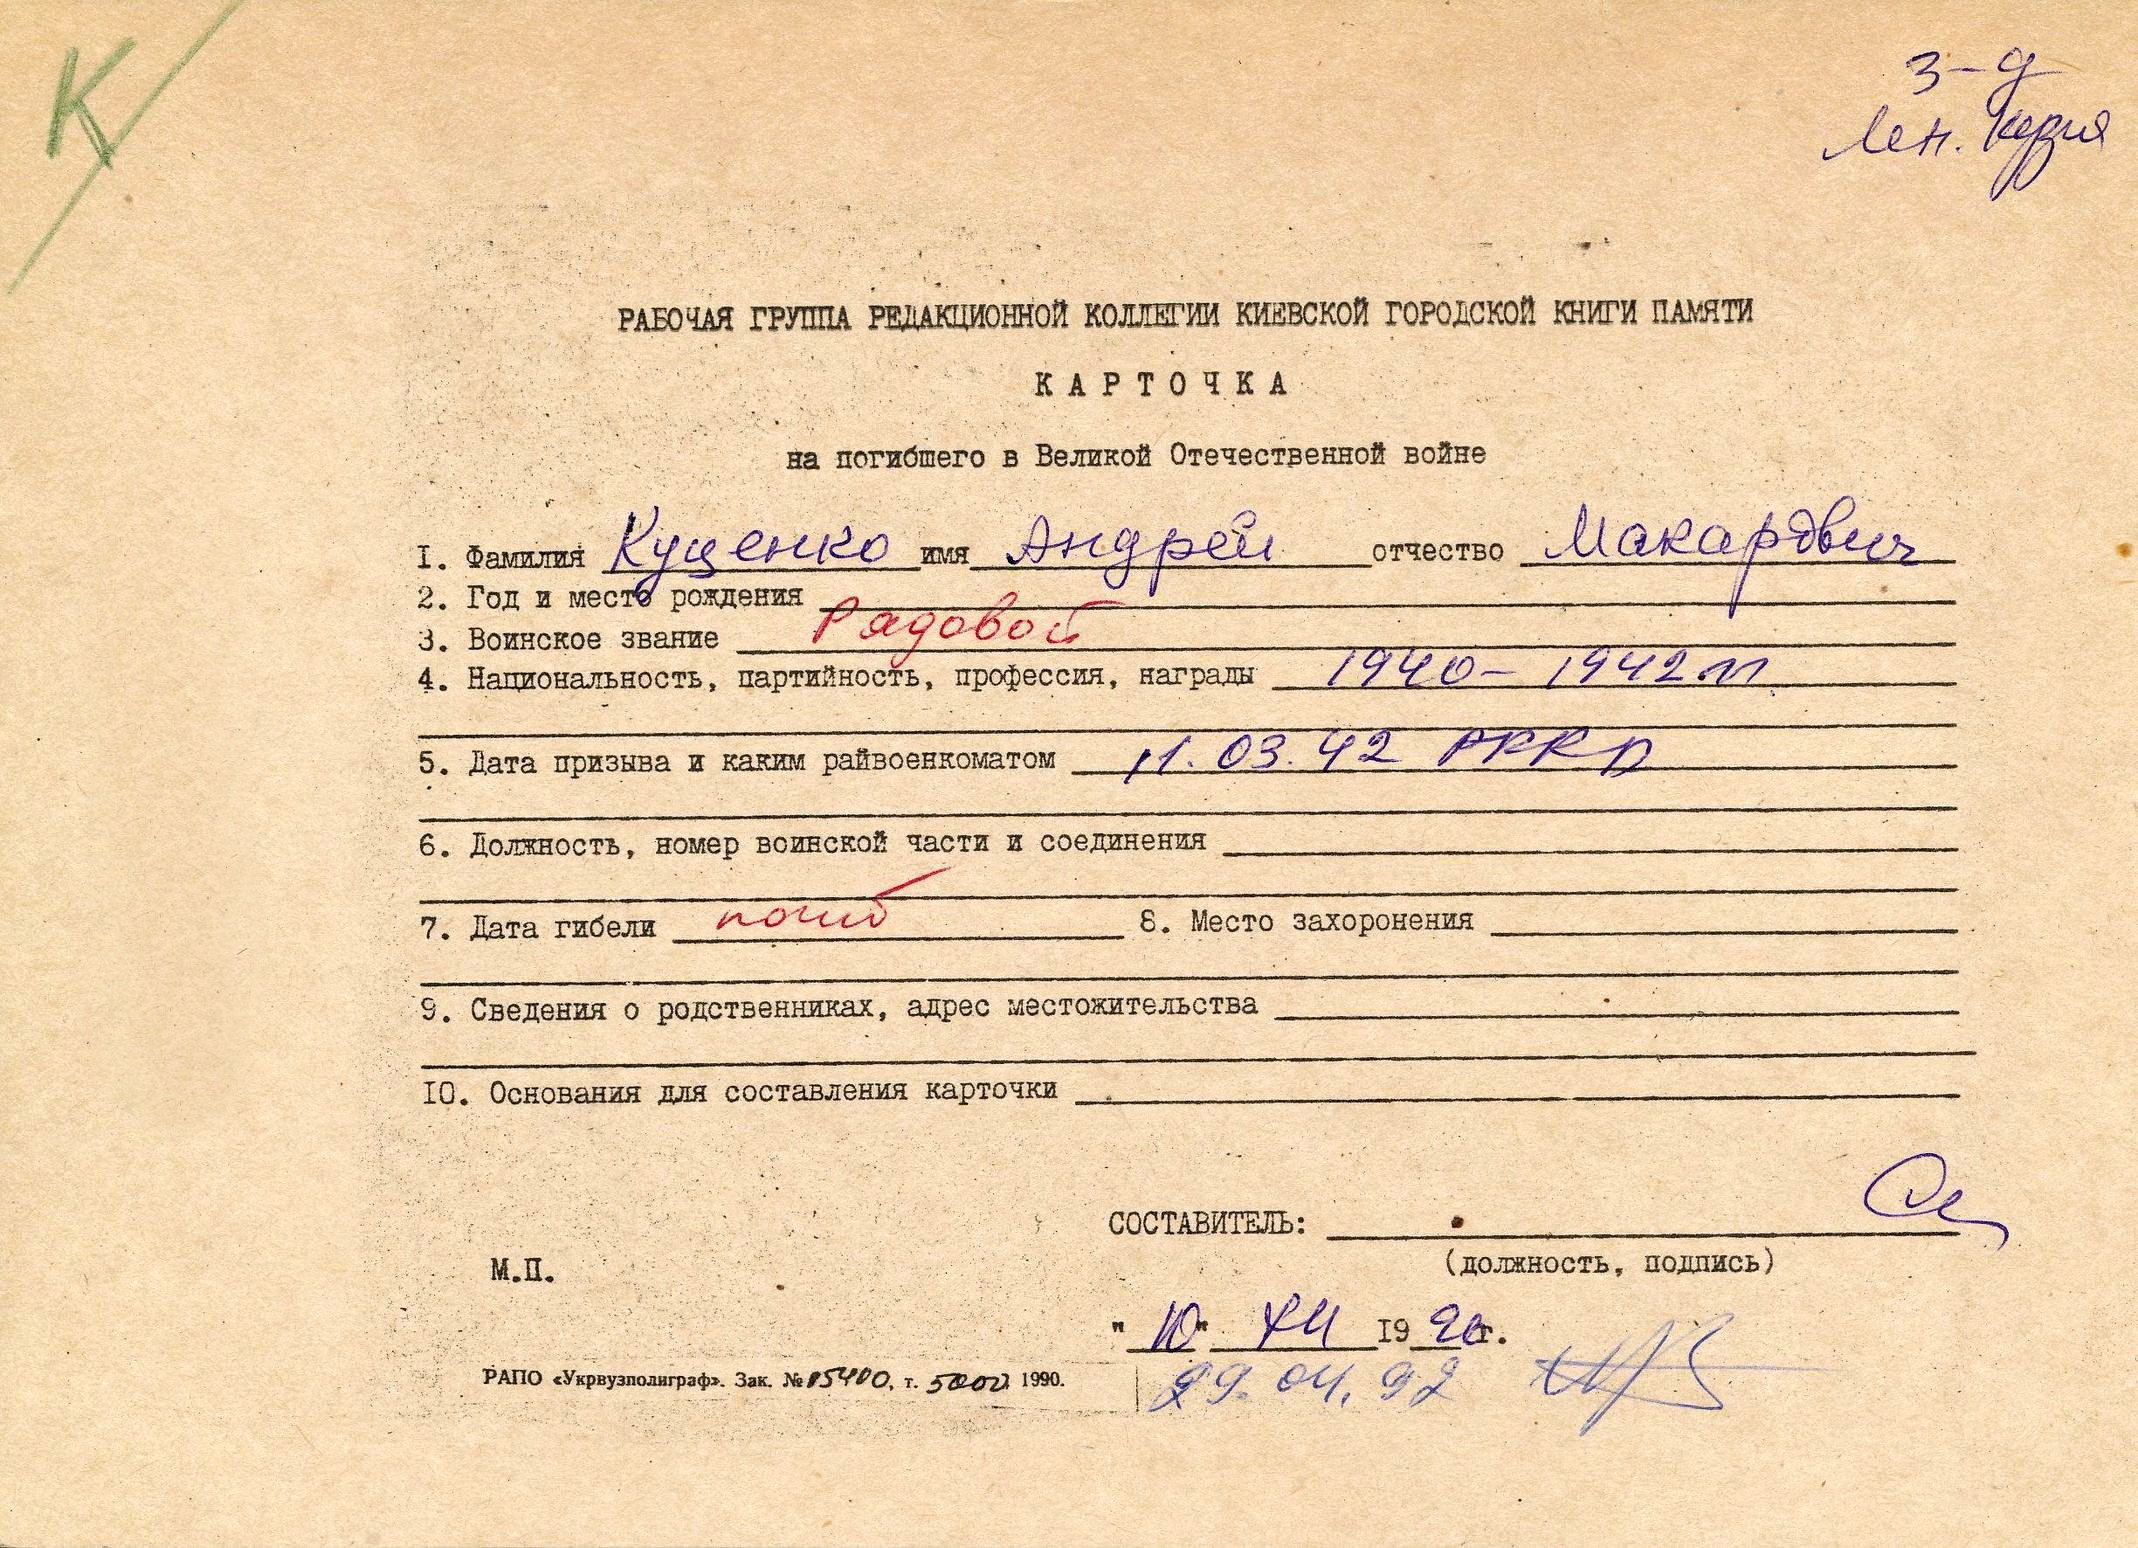 К
З-д
Лен. Кузня
РАБОЧАЯ ГРУППА РЕДАКЦИОННОЙ КОЛЛЕГИИ КИЕВСКОЙ ГОРОДСКОЙ КНИГИ ПАМЯТИ
КАРТОЧКА
на погибшего в Великой Отечественной войне
1. Фамилия Куценко имя Андрей отчество Макарович
2. Год и место рождения
3. Воинское звание Рядовой
4. Национальность, партийность, профессия, награды 1940-1942 гг
5. Дата призыва и каким райвоенкоматом 11.03.42 РККА
6. Должность, номер воинской части и соединения
7. Дата гибели погиб 8. Место захоронения
9. Сведения о родственниках, адрес местожительства
10. Основания для составления карточки
СОСТАВИТЕЛЬ:
(должность, подпись)
М.П.
"10" XII 1990г.
РАПО «Укрвузполиграф». Зак. № 05400, т. 5000 1990.
29.04.92